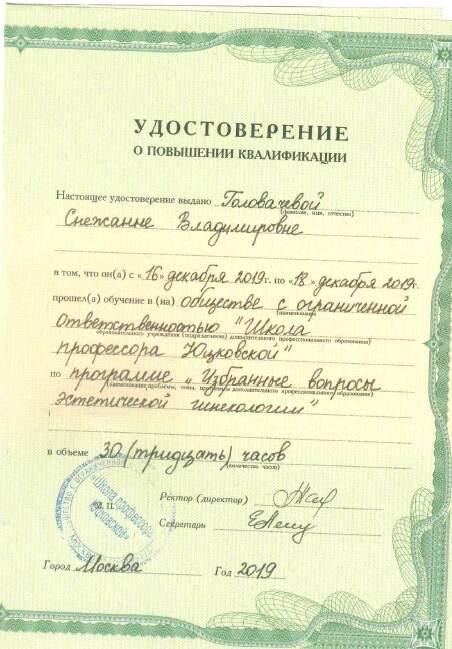 УДОСТОВЕРЕНИЕ
О ПОВЫШЕНИИ КВАЛИФИКАЦИИ
Настоящее удостоверение выдано Головачевой
(фамилия, имя, отчество)
Снежанне Владимировне
в том, что он(а) с «16» декабря 2019г. по «18» декабря 2019г.
прошел(а) обучение в (на) обществе с ограниченной
(наименование
ответственностью "Школа
образовательного учреждения (подразделения) дополнительного профессионального образования)
профессора Юцковской"
по программе „Избранные вопросы
(наименование проблемы, темы, программы дополнительного профессионального образования)
эстетической гинекологии"
в объеме 30 (тридцать) часов
(количество часов)
«Школа профессора
Юцковской»
М. П.
Ректор (директор)
Секретарь
Город Москва Год 2019